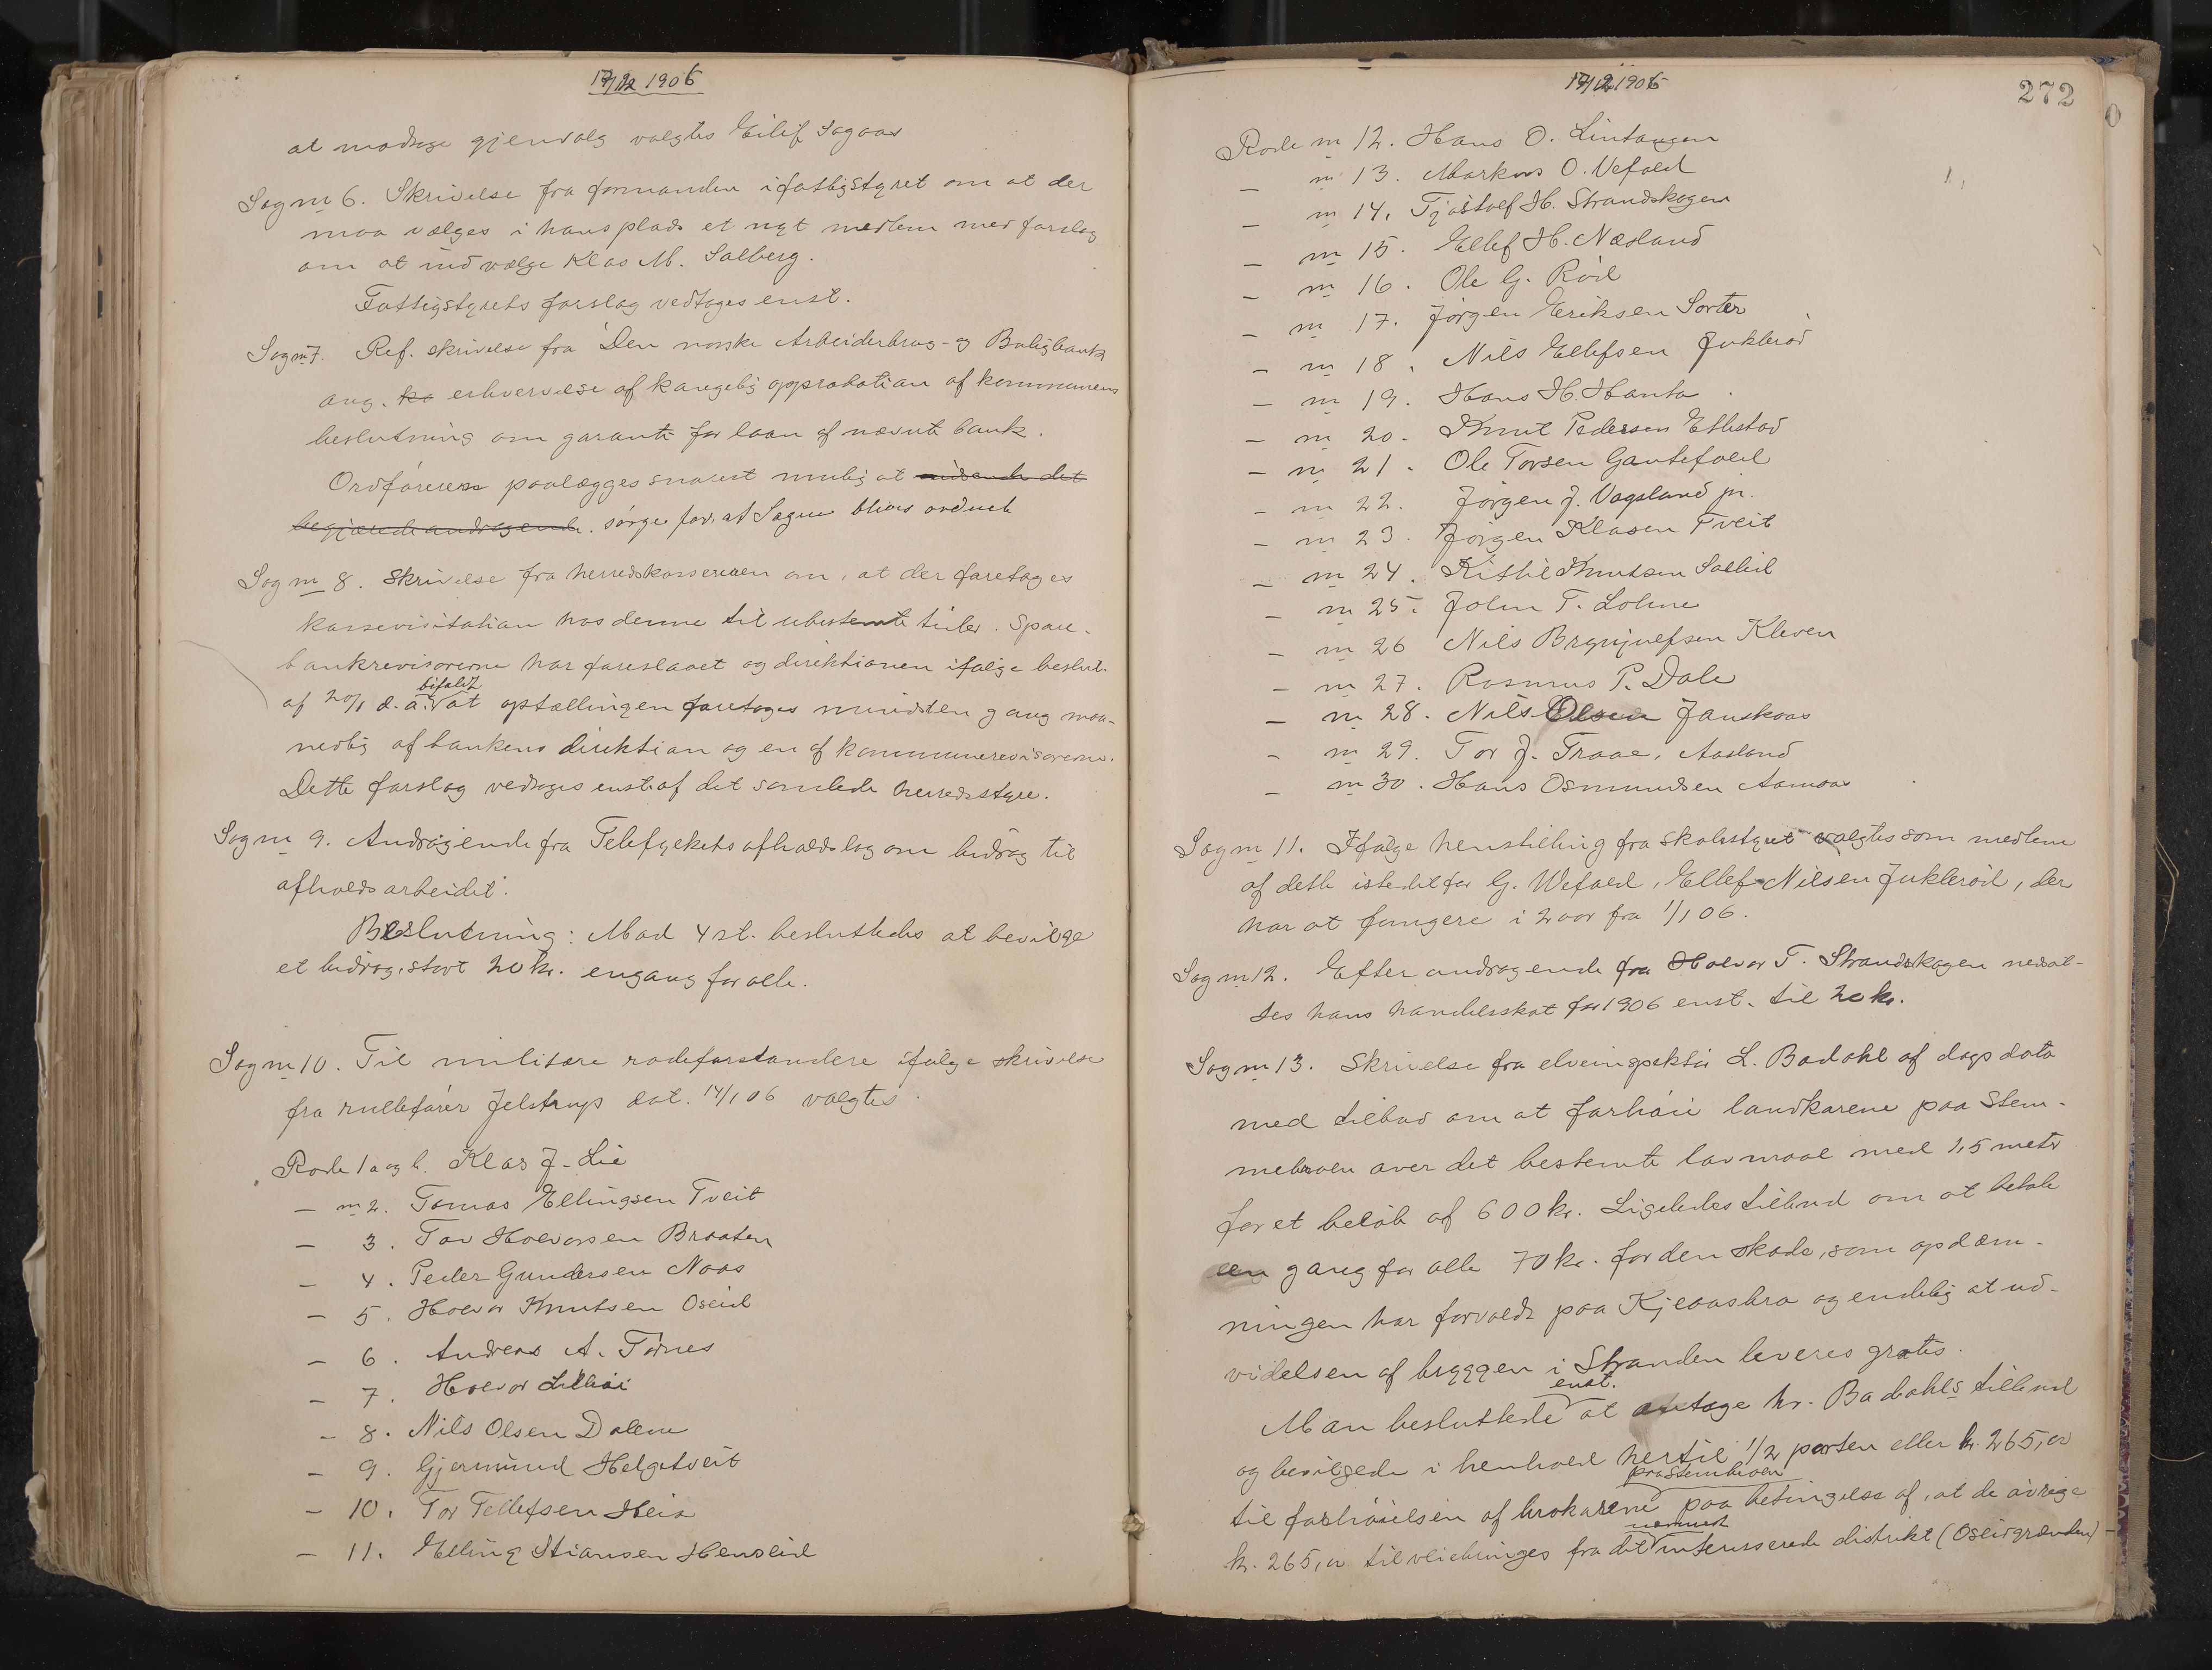 17/12 1906
at modtage gjenvalg valgtes Eilif Sagaas
Sag no 6. Skrivelse fra formanden i fattigstyret om at der
maa vælges i hans plads et nyt medlem med forslag
om at indvælge Klas M. Solberg.
Fattigstyrets forslag vedtages enst.
Sag no 7. Ref. skrivelse fra Den norske Arbeiderbrug- og Boligbank
ang. ko erhvervelse af kongelig approbation af kommunens
beslutning om garanti for laan af nævnte bank.
Ordføreren paalægges snarest mulig at indsende det
begjærede andragende. sørge for, at Sagen blives ordnet
Sag no 8. Skrivelse fra herredskassereren om, at der foretages
kassevisitation hos denne til ubestemte tider. Spare-
bankrevisorerne har foreslaaet og direktionen ifølge beslut.
bifaldt
af 20/1 d.a. at optællingen foretages mindst en gang maa-
nedlig af bankens direktion og en af kommunerevisorerne.
Dette forslag vedtoges enst. af det samlede herredsstyre.
Sag no 9. Andragende fra Telefylkets afholdslag om bidrag til
afholdsarbeidet.
Beslutning: Mod 4 st. besluttedes at bevilge
et bidrag, stort 20 kr. engang for alle.
Sag no 10. Til militære rodeforstandere ifølge skrivelse
fra rullefører Jelstrup dat. 14/1 06 valgtes
Rode 1 a og b. Klas J. Lie
- no 2. Tomas Ellingsen Tveit
- 3. Tov Halvorsen Braaten
- 4. Peder Gundersen Naas
- 5. Halvor Knutsen Oseid
- 6. Andreas A. Tørnes
- 7. Halvor Lillhøi
- 8. Nils Olsen Dalene
- 9. Gjermund Helgetveit
- 10. Tor Tellefsen Heia
- 11. Elling Stiansen Henseid
17/12 1906
272
Rode no 12. Hans O. Lintangen
- no 13. Markus O. Vefald
- no 14. Tjøstolf H. Strandskogen
- no 15. Ellef H. Næsland
- no 16. Ole G. Röd
- no 17. Jørgen Eriksen Sorter
- no 18. Nils Ellefsen Juklerød
- no 19. Hans H. Hanto
- no 20. Knut Pedersen Ettestad
- no 21. Ole Torsen Gautefald
- no 22. Jørgen J. Vogsland jr.
- no 23. Jørgen Klasen Tveit
- no 24. Kittil Knutsen Solli
- no 25. John T. Lohne
- no 26 Nils Brynjulfsen Kleven
- no 27. Rasmus P. Dale
- no 28. Nils Olsen Jonskaas
- no 29. Tor J. Traae, Aasland
- no 30. Hans Osmundsen Aamaas
Sag no 11. Ifølge henstilling fra skolestyret valgtes som medlem
af dette istedetfor G. Wefald, Ellef Nilsen Juklerød, der
har at fungere i 2 aar fra 1/1 06.
Sag no 12. Efter andragende fra Halvor T. Strandskogen nedsat-
tes hans handelsskat for 1906 enst. til 20 kr.
Sag no 13. Skrivelse fra elveinspektør L. Badahl af dags dato
med tilbud om at forhøie landkarene paa Stem-
mebroen over det bestemte lavmaal med 1,5 meter
for et beløb af 600 kr. Ligeledes tilbud om at betale
een gang for alle 70 kr. for den skade, som opdæm-
ningen har forvoldt paa Kjeaasbro og endelig at ud-
videlsen af bryggen i Stranden leveres gratis.
enst.
Man besluttede at antage hr. Badahls tilbud
og bevilgede i henhold hertil 1/2 parten eller kr. 265,00
fra Stembroen
til forhøielsen af brokarene paa betingelse af, at de øvrige
nærmest
kr. 265,00 tilveiebringes fra det interesserede distrikt (Oseidgrænden) -